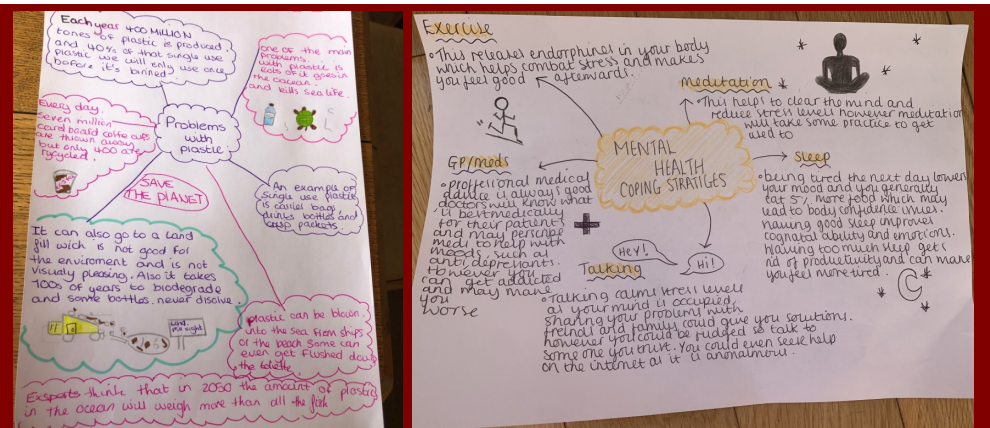 Each year 400 MILLION
tones of plastic is produced
and 40% of that single use
plastic we will only use once
before it's binned.
one of the main
problems
with plastic is
lots of it goes in
the ocean
and kills sea life.
Every day
seven million
card board coffe cups
are thrown away
but only 400 are
rycycled.
Problems
with
plastic
SAVE
THE PLANET
An example of
single use plastic
is carrier bags
drinks bottles and
crisp packets.
It can also go to a land
fill wich is not good for
the enviroment and is not
visually pleasing. Also it takes
100s of years to biodegrade
and some bottles never disolve.
plastic can be blown
into the sea from ships
or the beach some can
even get flushed down
the toilette
Exsperts think that in 2050 the amount of plastic
in the ocean will weigh more than all the fish
Exercise
• This releases endorphines in your body
which helps combat stress and makes
you feel good afterwards.
meditation
• This helps to clear the mind and
reduce stress levels however meditation
will take some practice to get
used to
MENTAL
HEALTH
COPING STRATIGES
GP/meds
• proffessional medical
advice is always good
doctors will know what
is best medically
for their patients
and may perscribe
meds to help with
moods, such as
anti depressants.
However you
can get addicted
and may make
you
worse
Sleep
• being tired the next day lowers
your mood and you generally
eat 5% more food which may
lead to body confidence issues.
Having good sleep improves
cognatal ability and emotions.
Having too much sleep gets
rid of productivity and can make
you feel more tired.
Talking
HEY!
Hi!
• Talking calms stress levels
as your mind is occupied,
sharing your problems with
freinds and family could give you solutions.
however you could be judged so talk to
some one you trust. You could even seek help
on the internet as it is anonalmous.